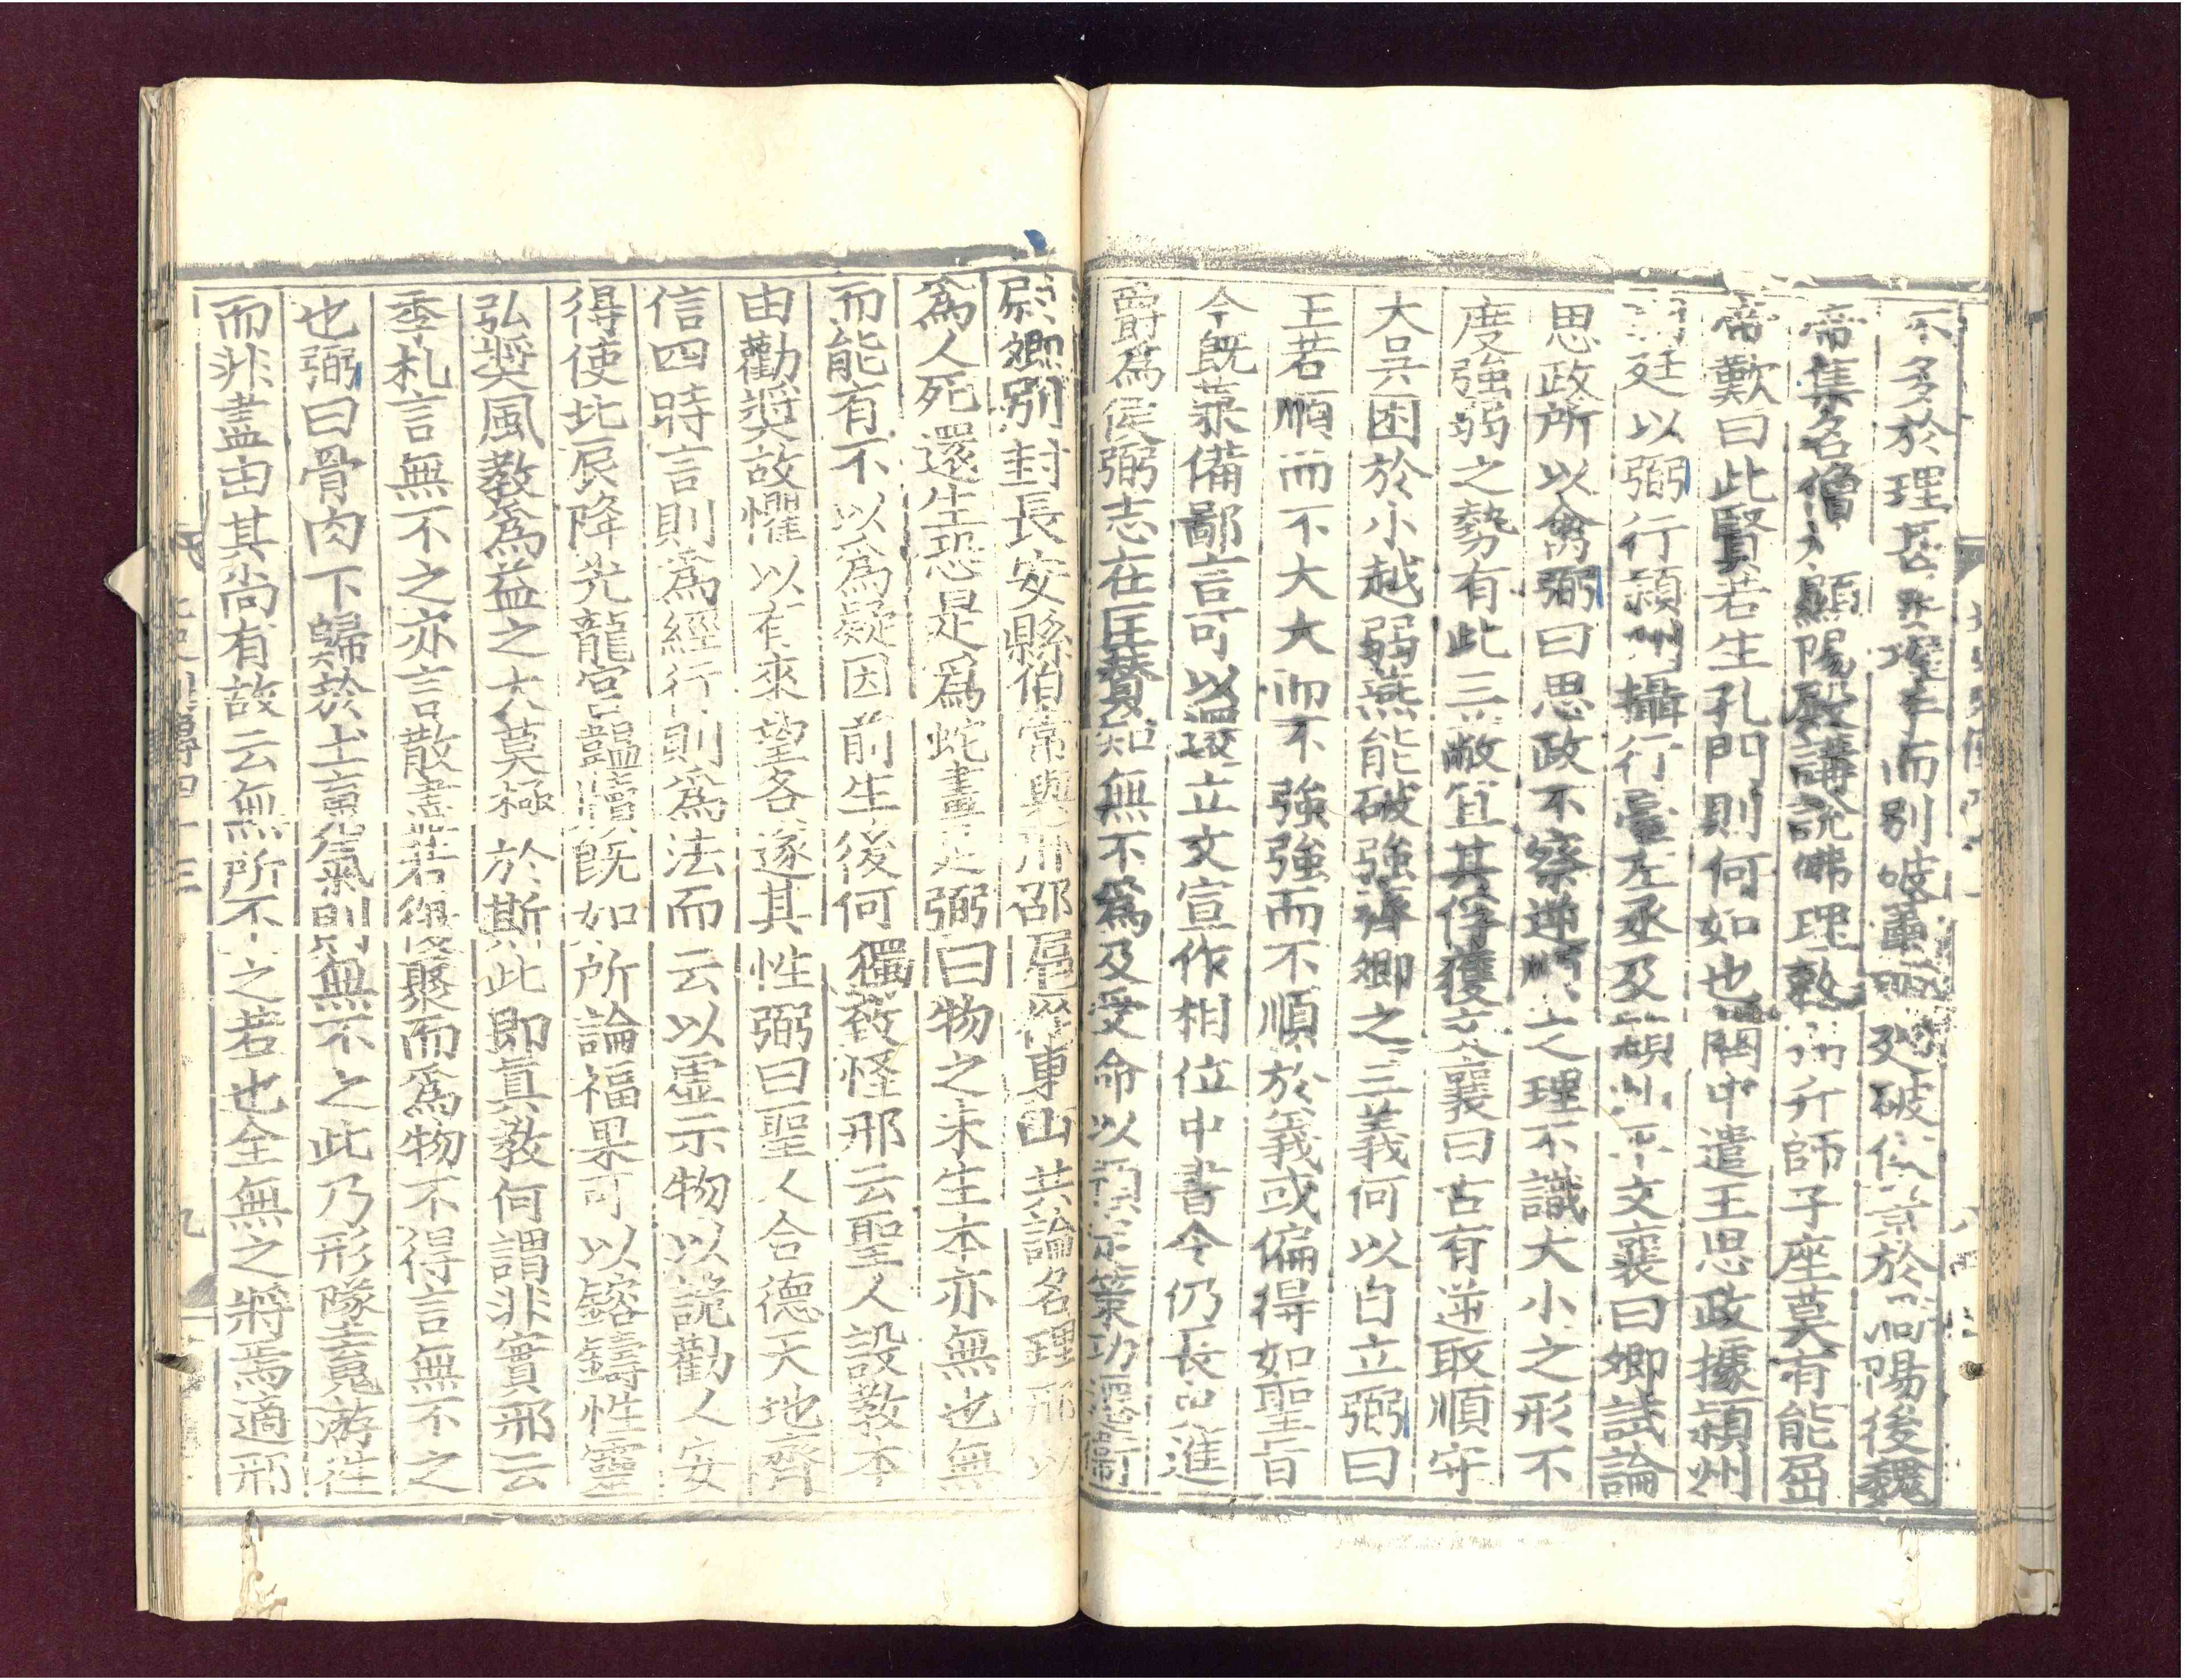 不多於理甚要握手而別破蕭明於
帝集名僧於顯陽殿講說佛理敕弼升師子座莫有能屈
帝歎曰此賢若生孔門則何如也關中遣王思政據潁州
朝廷以弼行潁州攝行臺左丞及潁州平文襄曰卿試論
思政所以禽弼曰思政不察逆順之理不識大小之形不
度強弱之勢有此三蔽宜其俘獲文襄曰古有逆取順守
大吳困於小越弱燕能破強齊卿之三義何以自立弼曰
王若順而不大大而不強強而不順於義或偏得如聖旨
今旣蒙備鄙言可以還立文宣作相位中書令仍長史進
爵爲侯弼志在匡贊知無不爲及受命以預定策功遷衛
尉卿別封長安縣伯常與邢邵扈從東山共論名理邢以
爲人死還生恐是爲蛇畫足弼曰物之未生本亦無也無
而能有不以爲疑因前生後何獨致怪邢云聖人設教本
由勸奬故懼以有來望各遂其性弼曰聖人合德天地齊
信四時言則爲經行則爲法而云以虛示物以詭勸人安
得使北辰降光龍宮韞櫝旣如所論福果可以鎔鑄性靈
弘奬風教爲益之大莫極於斯此卽眞教何謂非實邢云
季札言無不之亦言散盡若復聚而爲物不得言無不之
也弼曰骨肉下歸於土䰟氣則無不之此乃形隊䰟游往
而非盡由其尚有故云無所不之若也全無之將焉適邢